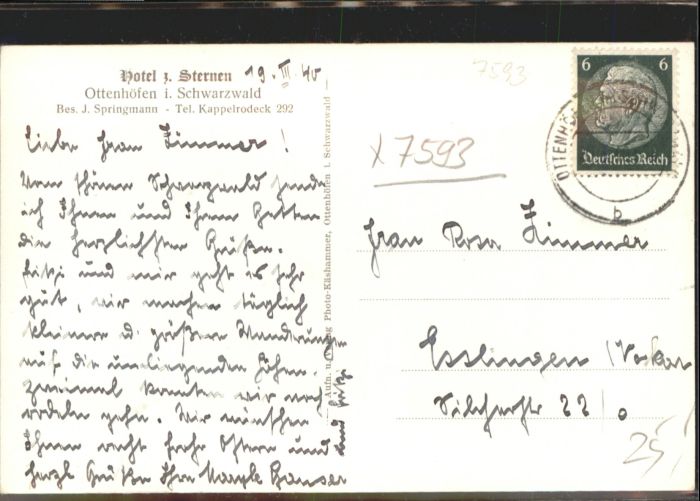 Hotel z. Sternen 19. III. 40.
Ottenhöfen i. Schwarzwald
Bes. J. Springmann - Tel. Kappelrodeck 292
Liebe Frau Zimmer!
Vom schönen Schwarzwald sende
ich Ihnen und Ihrem Gatten
die herzlichsten Grüße.
und mir geht es sehr
gut, wir machen täglich
kleinere u. größere Wanderungen
auf die umliegenden Höhen.
Zweimal konnten wir noch
rodeln gehn. Wir wünschen
Ihnen recht frohe Ostern und
herzl. Grüße Ihre
und
Aufn. u. Verlag Photo-Käshammer, Ottenhöfen i. Schwarzwald
7593
x 7593
6 6
Deutsches Reich
OTTENHÖFEN
b
Frau Rosa Zimmer
Esslingen /Neckar
Silcherstr 22/0
25,